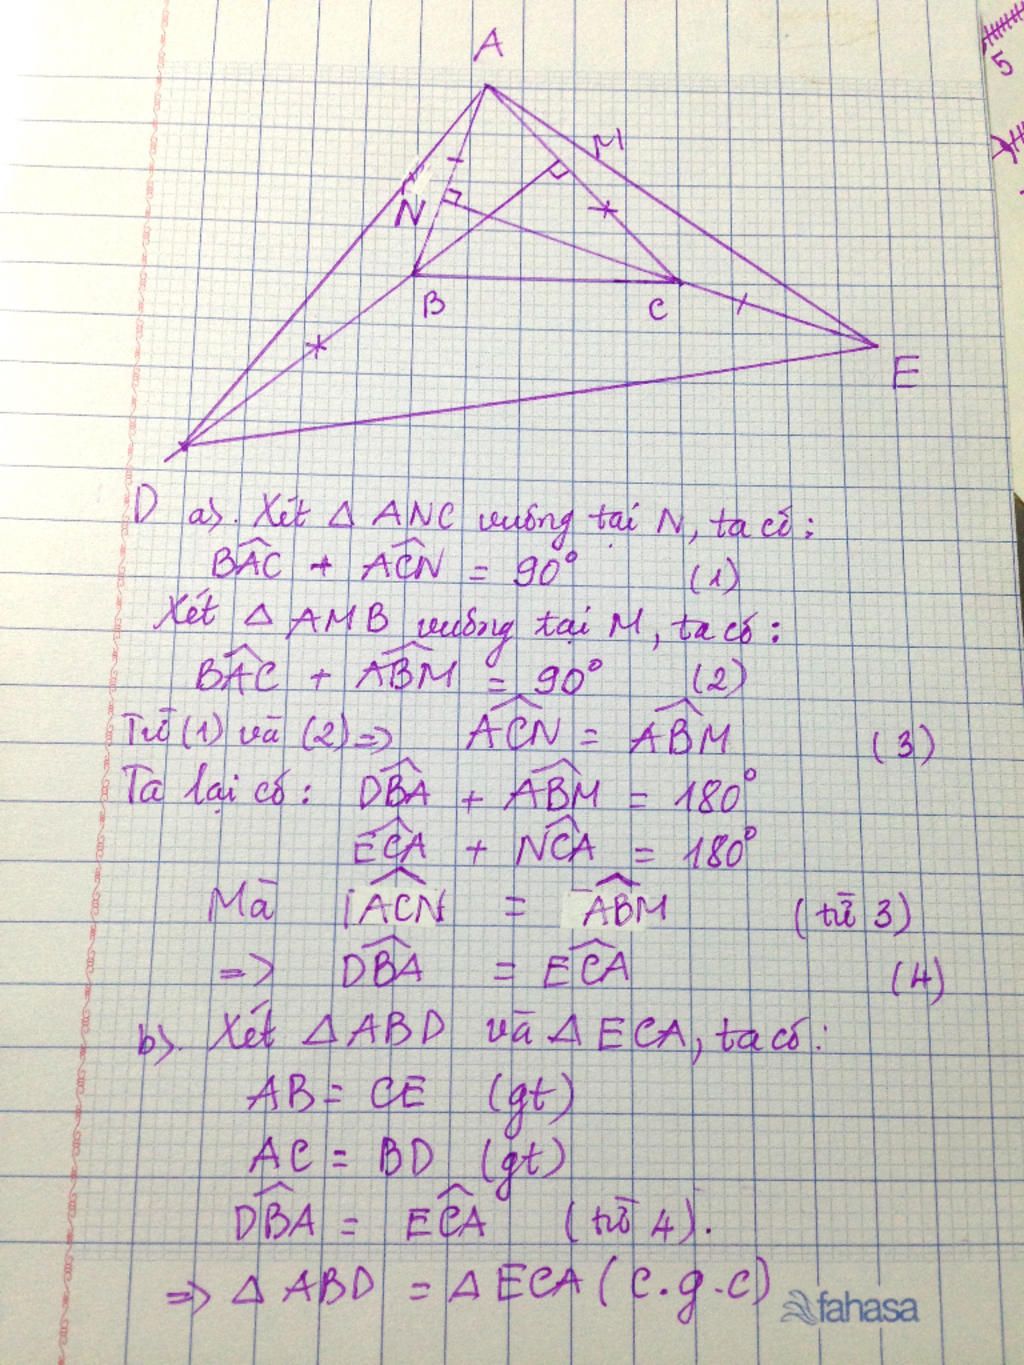 A
M
N
B
C
E
D
a). Xét Δ ANC vuông tại N, ta có:
BAC + ACN = 90° (1)
Xét Δ AMB vuông tại M, ta có:
BAC + ABM = 90° (2)
Từ (1) và (2) => ACN = ABM (3)
Ta lại có: DBA + ABM = 180°
ECA + NCA = 180°
Mà ACN = ABM (từ 3)
=> DBA = ECA (4)
b). Xét Δ ABD và Δ ECA, ta có:
AB = CE (gt)
AC = BD (gt)
DBA = ECA (từ 4).
=> Δ ABD = Δ ECA (c.g.c)
fahasa
5